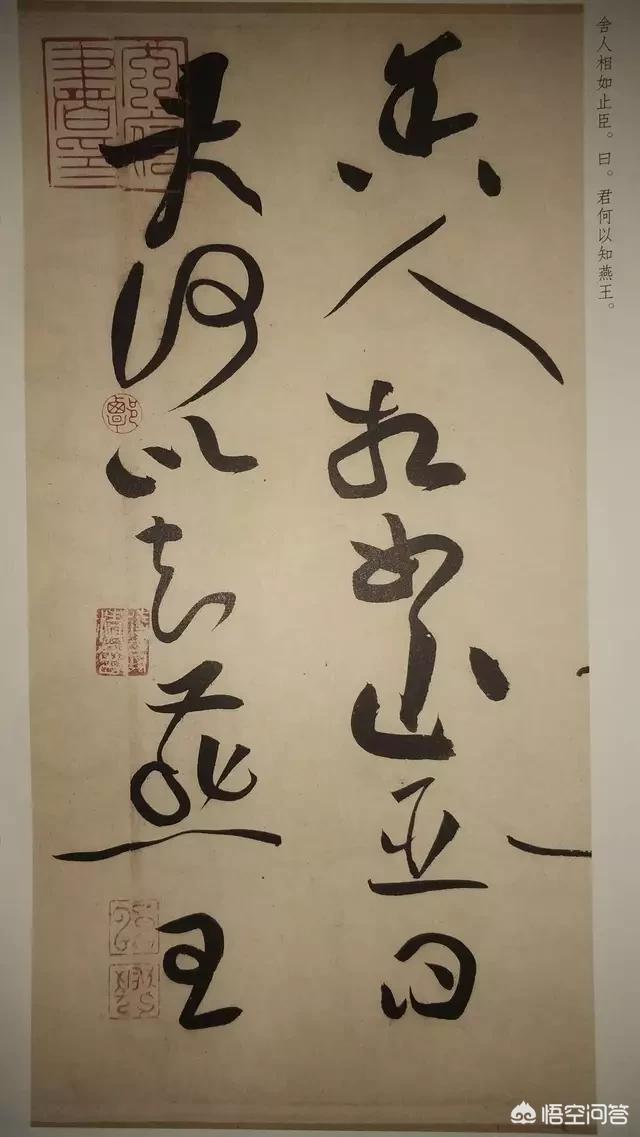 舍人相如止臣。曰。君何以知燕王。
舍人相如止臣曰
君何以知燕王
悟空问答